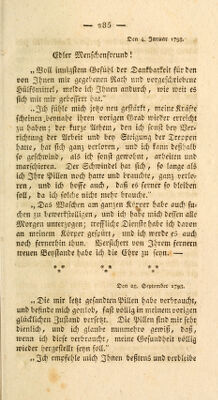 — 285 —
Den 4. Januar 1792.
Edler Menschenfreund!
„Voll innigstem Gefühl der Dankbarkeit für den
von Ihnen mir gegebenen Rath und vorgeschriebene
Hülfsmittel, melde ich Ihnen andurch, wie weit es
sich mit mir gebessert hat.“
„Ich fühle mich jezo neu gestärkt, meine Kräfte
scheinen bennahe ihren vorigen Grad wieder erreicht
zu haben; der kurze Athem, den ich sonst bey Ver-
richtung der Arbeit und der Steigung der Treppen
hatte, hat sich ganz verloren, und ich kann deshalb
so geschwind, als ich sonst gewohnt, arbeiten und
marschieren. Der Schwindel hat sich, so lange als
ich Ihre Pillen noch hatte und brauchte, ganz verlo-
ren, und ich hoffe auch, daß es ferner so bleiben
soll, da ich solche nicht mehr brauche.“
„Das Waschen am ganzen Körper habe auch su-
chen zu bewerkstelligen, und ich habe mich dessen alle
Morgen unterzogen; treffliche Dienste habe ich davon
an meinem Körper gespürt, und ich werde es auch
noch fernerhin thun. Versichert von Ihrem fernern
treuen Beystande habe ich die Ehre zu seyn. —
* * *
Den 25. September 1792.
„Die mir letzt gesandten Pillen habe verbraucht,
und befinde mich gottlob, fast völlig in meinem vorigen
glücklichen Zustand versetzt. Die Pillen sind mir sehr
dienlich, und ich glaube nunmehro gewiß, daß,
wenn ich diese verbraucht, meine Gesundheit völlig
wieder hergestellt seyn soll.“
„Ich empfehle mich Ihnen bestens und verbleibe